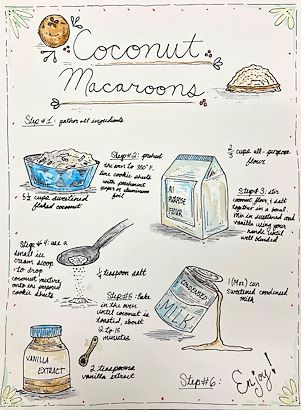 Coconut
Macaroons
Step #1: gather all ingredients
5½ cups sweetened
flaked coconut
Step #2: preheat
the oven to 350°F.
line cookie sheets
with parchment
paper or aluminum
foil
⅔ cups all-purpose
flour
ALL
PURPOSE
FLOUR
Step #3: stir
coconut, flour, & salt
together in a bowl.
Mix in sweetened and
vanilla using your
hands until
well blended
Step #4: use a
small ice
cream scoop
to drop
coconut mixture
onto the prepared
cookie sheets
¼ teaspoon salt
Step #5: bake
in the oven
until coconut is
toasted, about
12 to
15 minutes
CONDENSED
MILK
1 (14oz) can
sweetened condensed
milk
VANILLA
EXTRACT
2 teaspoons
vanilla extract
Step #6: Enjoy!